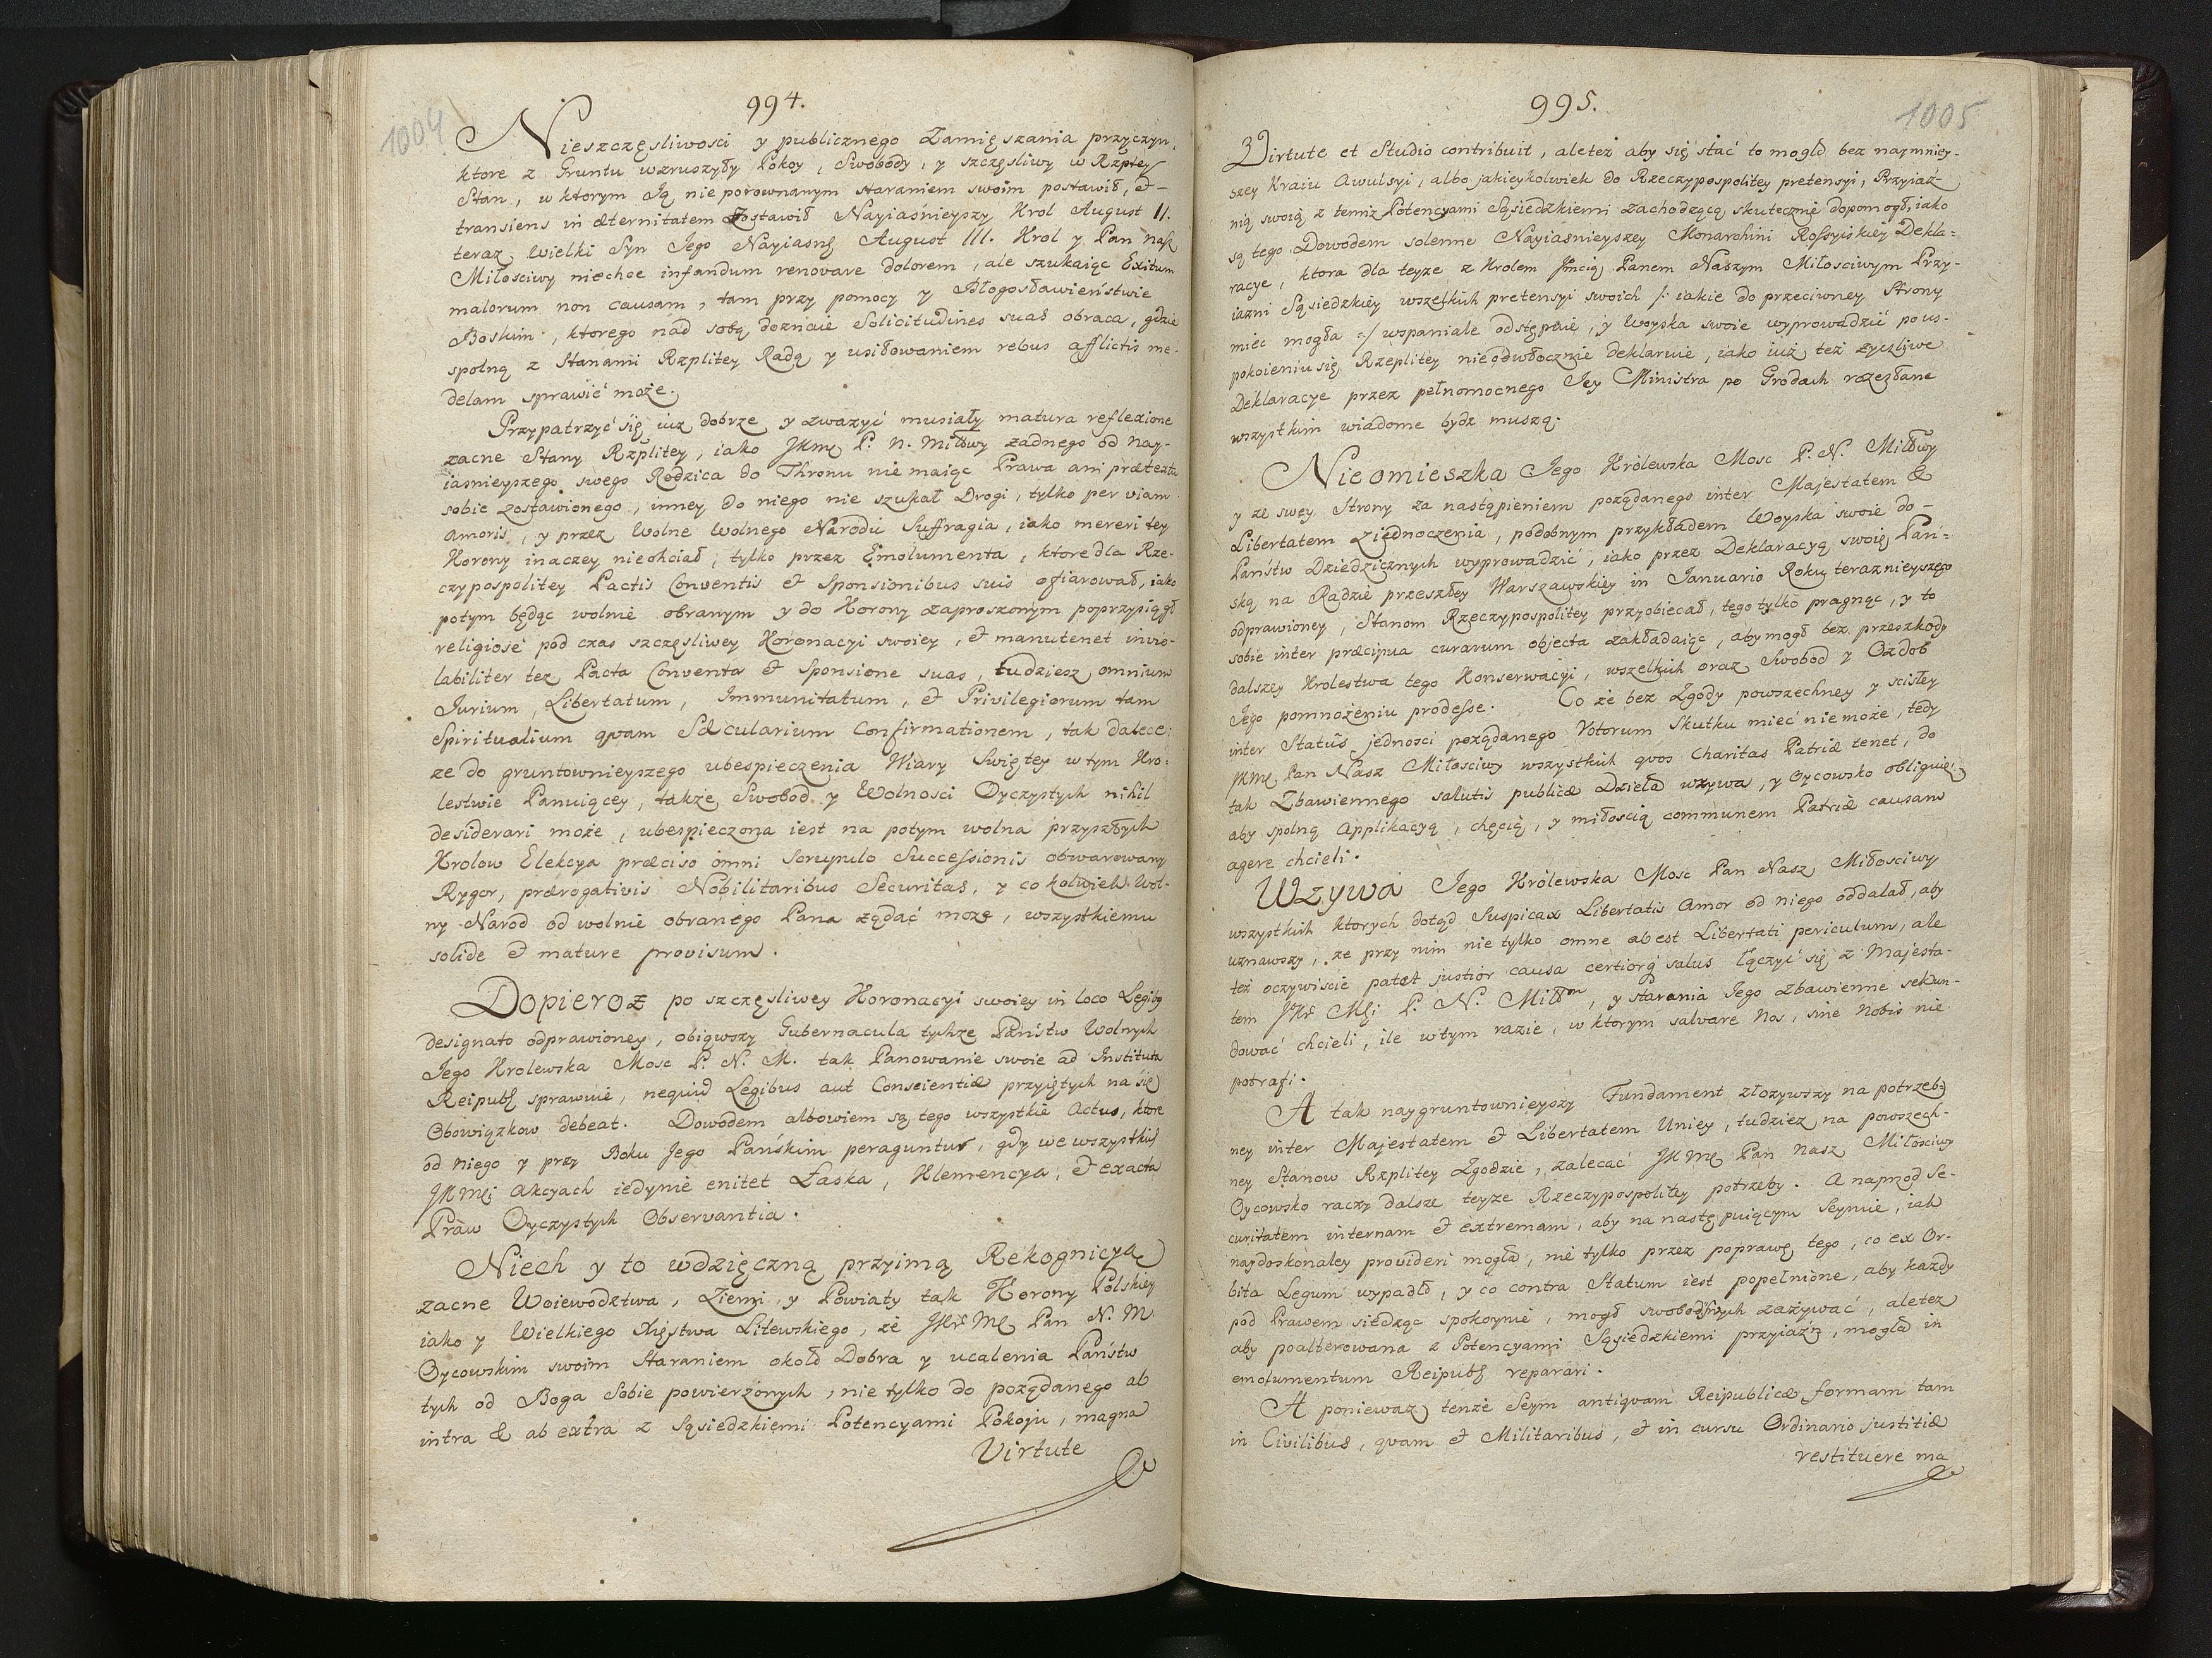 994.
1004
Nieszczęsliwosci y publicznego Zamięszania przyczyn,
ktore z Gruntu wzruszyły Pokoy, Swobody, y szczęsliwy w Rzptey
Stan, w ktorym Ją nieporownanym staraniem swoim postawił, et
transiens in æternitatem Zostawił Nayiaśnieyszy Krol August II.
teraz Wielki Syn Jego Nayiasny August III. Krol y Pan nasz
Miłosciwy niechce infandum renovare dolorem, ale szukaiąc Exitum
malorum non causam, tam przy pomocy y Błogosławieństwie
Boskim, ktorego nad sobą doznaie Solicitudines suas obraca, gdzie
spolną z Stanami Rzplitey Radą y usiłowaniem rebus afflictis me-
delam sprawić może.
Przypatrzyć się iuż dobrze y zwazyć musiały matura reflexione
zacne Stany Rzplitey, iako JKMć P. N. Miłłwy zadnego od Nay-
iasnieyszego swego Rodzica do Thronu nie maiąc Prawa ani prætextu
sobie zostawionego, inney do niego nie szukał Drogi, tylko per viam
amoris, y przez Wolne Wolnego Narodu Suffragia, iako mereri tey
Korony inaczey niechciał, tylko przez Emolumenta, ktore dla Rze-
czypospolitey Pactis Conventis et Sponsionibus suis ofiarował, iako
potym będąc wolnie obranym y do Korony zaproszonym poprzysiągł
religiose pod czas szczęsliwey Koronacyi swoiey, et manutenet invio-
labiliter tez Pacta Conventa et Sponsione suas, tudziesz omnium
Jurium, Libertatum, Immunitatum, et Privilegiorum tam
Spiritualium qvam Sæcularium Confirmationem, tak dalece:
ze do gruntownieyszego ubespieczenia Wiary Swiętey w tym Kro-
lestwie Panuiącey, także Swobod y Wolnosci Oyczystych nihil
desiderari może, ubespieczona iest na potym wolna przyszłych
Krolow Elekcya præciso omni Scrupulo Successionis obwarowany
Rygor, prærogativis Nobilitaribus Securitas, y cokolwiek Wol-
ny Narod od wolnie obranego Pana ządać może, wszystkiemu
solide et mature provisum.
Dopieroz po szczęsliwey Koronacyi swoiey in loco Legibq
designato odprawioney, obiąwszy Gubernacula tychze Państw Wolnych
Jego Krolewska Mosc P. N. M. tak Panowanie swoie ad Instituta
Reipubl sprawuie, nequid Legibus aut Conscientiæ przyiętych na się
Obowiązkow debeat. Dowodem albowiem są tego wszystkie Actus, ktore
od niego y przy Boku Jego Pańskim peraguntur, gdy we wszystkich
JKMci Akcyach iedynie enitet Łaska, Klemencya, et exacta
Praw Oyczystych Observantia.
Niech y to wdzięczną przyimą Rekognicyą
zacne Woiewodztwa, Ziemi y Powiaty tak Korony Polskiey
iako y Wielkiego Xięstwa Litewskiego, ze JKr Mć Pan N. M.
Oycowskim swoim Staraniem około Dobra y ucalenia Państw
tych od Boga Sobie powierzonych, nie tylko do poządanego ab
intra & ab extra z Sąsiedzkiemi Potencyami Pokoju, magna
Virtute
995.
1005
Virtute et Studio contribuit, aletez aby się stać to mogło bez naymniey-
szey Kraiu Awulsyi, albo jakieykolwiek do Rzeczypospolitey pretensyi, Przyiaz-
nią swoią z temiz Potencyami Sąsiedzkiemi zachodzącą skutecznie dopomogł, iako
są tego Dowodem solenne Nayiasnieyszey Monarchini Rossyiskiey Dekla-
racye, ktora dla teyze z Krolem Jmcią Panem Naszym Miłosciwym Przy-
iazni Sąsiedzkiey wszelkich pretensyi swoich /: iakie do przeciwney Strony
miec mogła :/ wspaniale odstępuie, y Woyska swoie wyprowadzić po us-
pokoieniu się Rzeplitey nieodwłocznie deklaruie, iako iuż też zyczliwe
Deklaracye przez pełnomocnego Jey Ministra po Grodach rozesłane
wszystkim wiadome bydz muszą.
Nieomieszka Jego Królewska Mosc P. N. Miłłwy
y ze swey Strony za nastąpieniem poządanego inter Majestatem &
Libertatem Ziednoczenia, podobnym przykładem Woyska swoie do
Państw Dziedzicznych wyprowadzić, iako przez Deklaracyą swoię Pań-
ską na Radzie przeszłey Warszawskiey in Januario Roku teraznieyszego
odprawioney, Stanom Rzeczypospolitey przyobiecał, tego tylko pragnąc, y to
sobie inter præcipua curarum objecta zakładaiąc, aby mogł bez przeszkody
dalszey Krolestwa tego Konserwacyi, wszelkich oraz Swobod y Ozdob
Jego pomnożeniu prodesse. Co ze bez Zgody powszechney y scisłey
inter Status jednosci poządanego Votorum Skutku mieć nie może, tedy
JKMć Pan Nasz Miłosciwy wszystkich qvos Charitas Patriæ tenet, do
tak Zbawiennego salutis publicæ Dzieła wzywa, y Oycowsko obliguie,
aby spolną Applikacyą, chęcią, y miłoscią communem Patriæ causam
agere chcieli.
Wzywa Jego Królewska Mosc Pan Nasz Miłosciwy
wszystkich ktorych dotąd Suspicax Libertatis Amor od niego oddalał, aby
uznawszy, ze przy nim nie tylko omne abest Libertati periculum, ale
też oczywiscie patet justior causa certiorq salus łączyć się z Majesta-
tem JKr Mci P. N. Miłłm, y starania Jego zbawienne sekun-
dować chcieli, ile w tym razie, w ktorym salvare Nos, sine Nobis nie
potrafi.
A tak naygruntownieyszy Fundament złozywszy na potrzeb-
ney inter Majestatem et Libertatem Uniey, tudziez na powszech-
ney Stanow Rzplitey Zgodzie, zalecać JKMć Pan Nasz Miłosciwy
Oycowsko raczy dalsze teyze Rzeczypospolitey potrzeby. A naprzod Se-
curitatem internam et extremam, aby na następuiącym Seymie, iak
naydoskonaley provideri mogła, nie tylko przez poprawę tego, co ex Or-
bita Legum wypadło, y co contra Statum iest popełnione, aby kazdy
pod Prawem siedząc spokoynie, mogł swobodnych zażywać, aletez
aby poalterowana z Potencyami Sąsiedzkiemi przyiazn, mogła in
emolumentum Reipubl reparari.
A poniewaz tenże Seym antiqvam Reipublicæ formam tam
in Civilibus, qvam et Militaribus, et in cursu Ordinario justitiæ
restituere ma